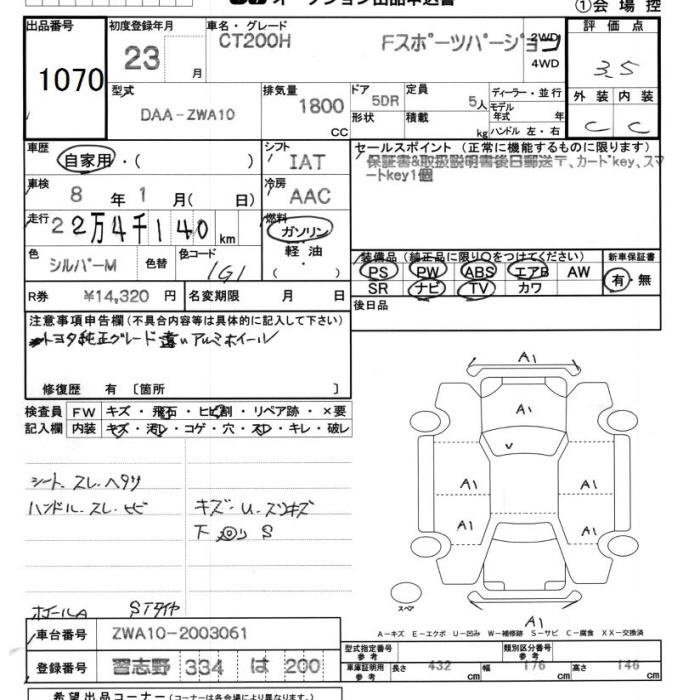 オークション出品申込書
①会場控
出品番号
1070
初度登録年月
23
月
車名・グレード
CT200H
Fスポーツバージョン
2WD
4WD
評価点
3.5
型式
DAA-ZWA10
排気量
1800
CC
ドア
5DR
形状
定員
5人
積載
kg
ディーラー・並行
モデル
年式 年
ハンドル 左・右
外装
内装
C
C
車歴
自家用・( )
シフト
IAT
セールスポイント (正常に機能するものに限ります)
保証書&取扱説明書後日郵送〒、カードkey、スマ
ートkey1個
車検
8 年 1 月( 日)
冷房
AAC
走行
22万4千140
km
燃料
ガソリン
軽油
( ・ )
色
シルバーM
色替
色コード
1G1
装備品 (純正品に限り○をつけてください)
PS PW ABS エアB AW
SR ナビ TV カワ
新車保証書
有・無
R券
¥14,320 円
名変期限 月 日
後日品
注意事項申告欄 (不具合内容等は具体的に記入して下さい)
トヨタ純正グレード違いアルミホイール
修復歴 有 〔箇所 〕
検査員
記入欄
FW
キズ・飛石・ヒビ割・リペア跡・×要
内装
キズ・汚レ・コゲ・穴・スレ・キレ・破レ
シート.スレ.ヘタリ
ハンドル.スレ.ヒビ
キズ・U・スリキズ
下回り S
ホイールA
STタイヤ
A1
A1
A1
A1
A1
A1
A1
スペア
A-キズ E-エクボ U-凹み W-補修跡 S-サビ C-腐食 XX-交換済
車台番号
ZWA10-2003061
登録番号
習志野 334 は 200
型式指定番号
参考
類別区分番号
参考
車庫証明用
参考
長さ 432 cm
幅 176 cm
高さ 146 cm
希望出品コーナー (コーナーは各会場により異なります。)